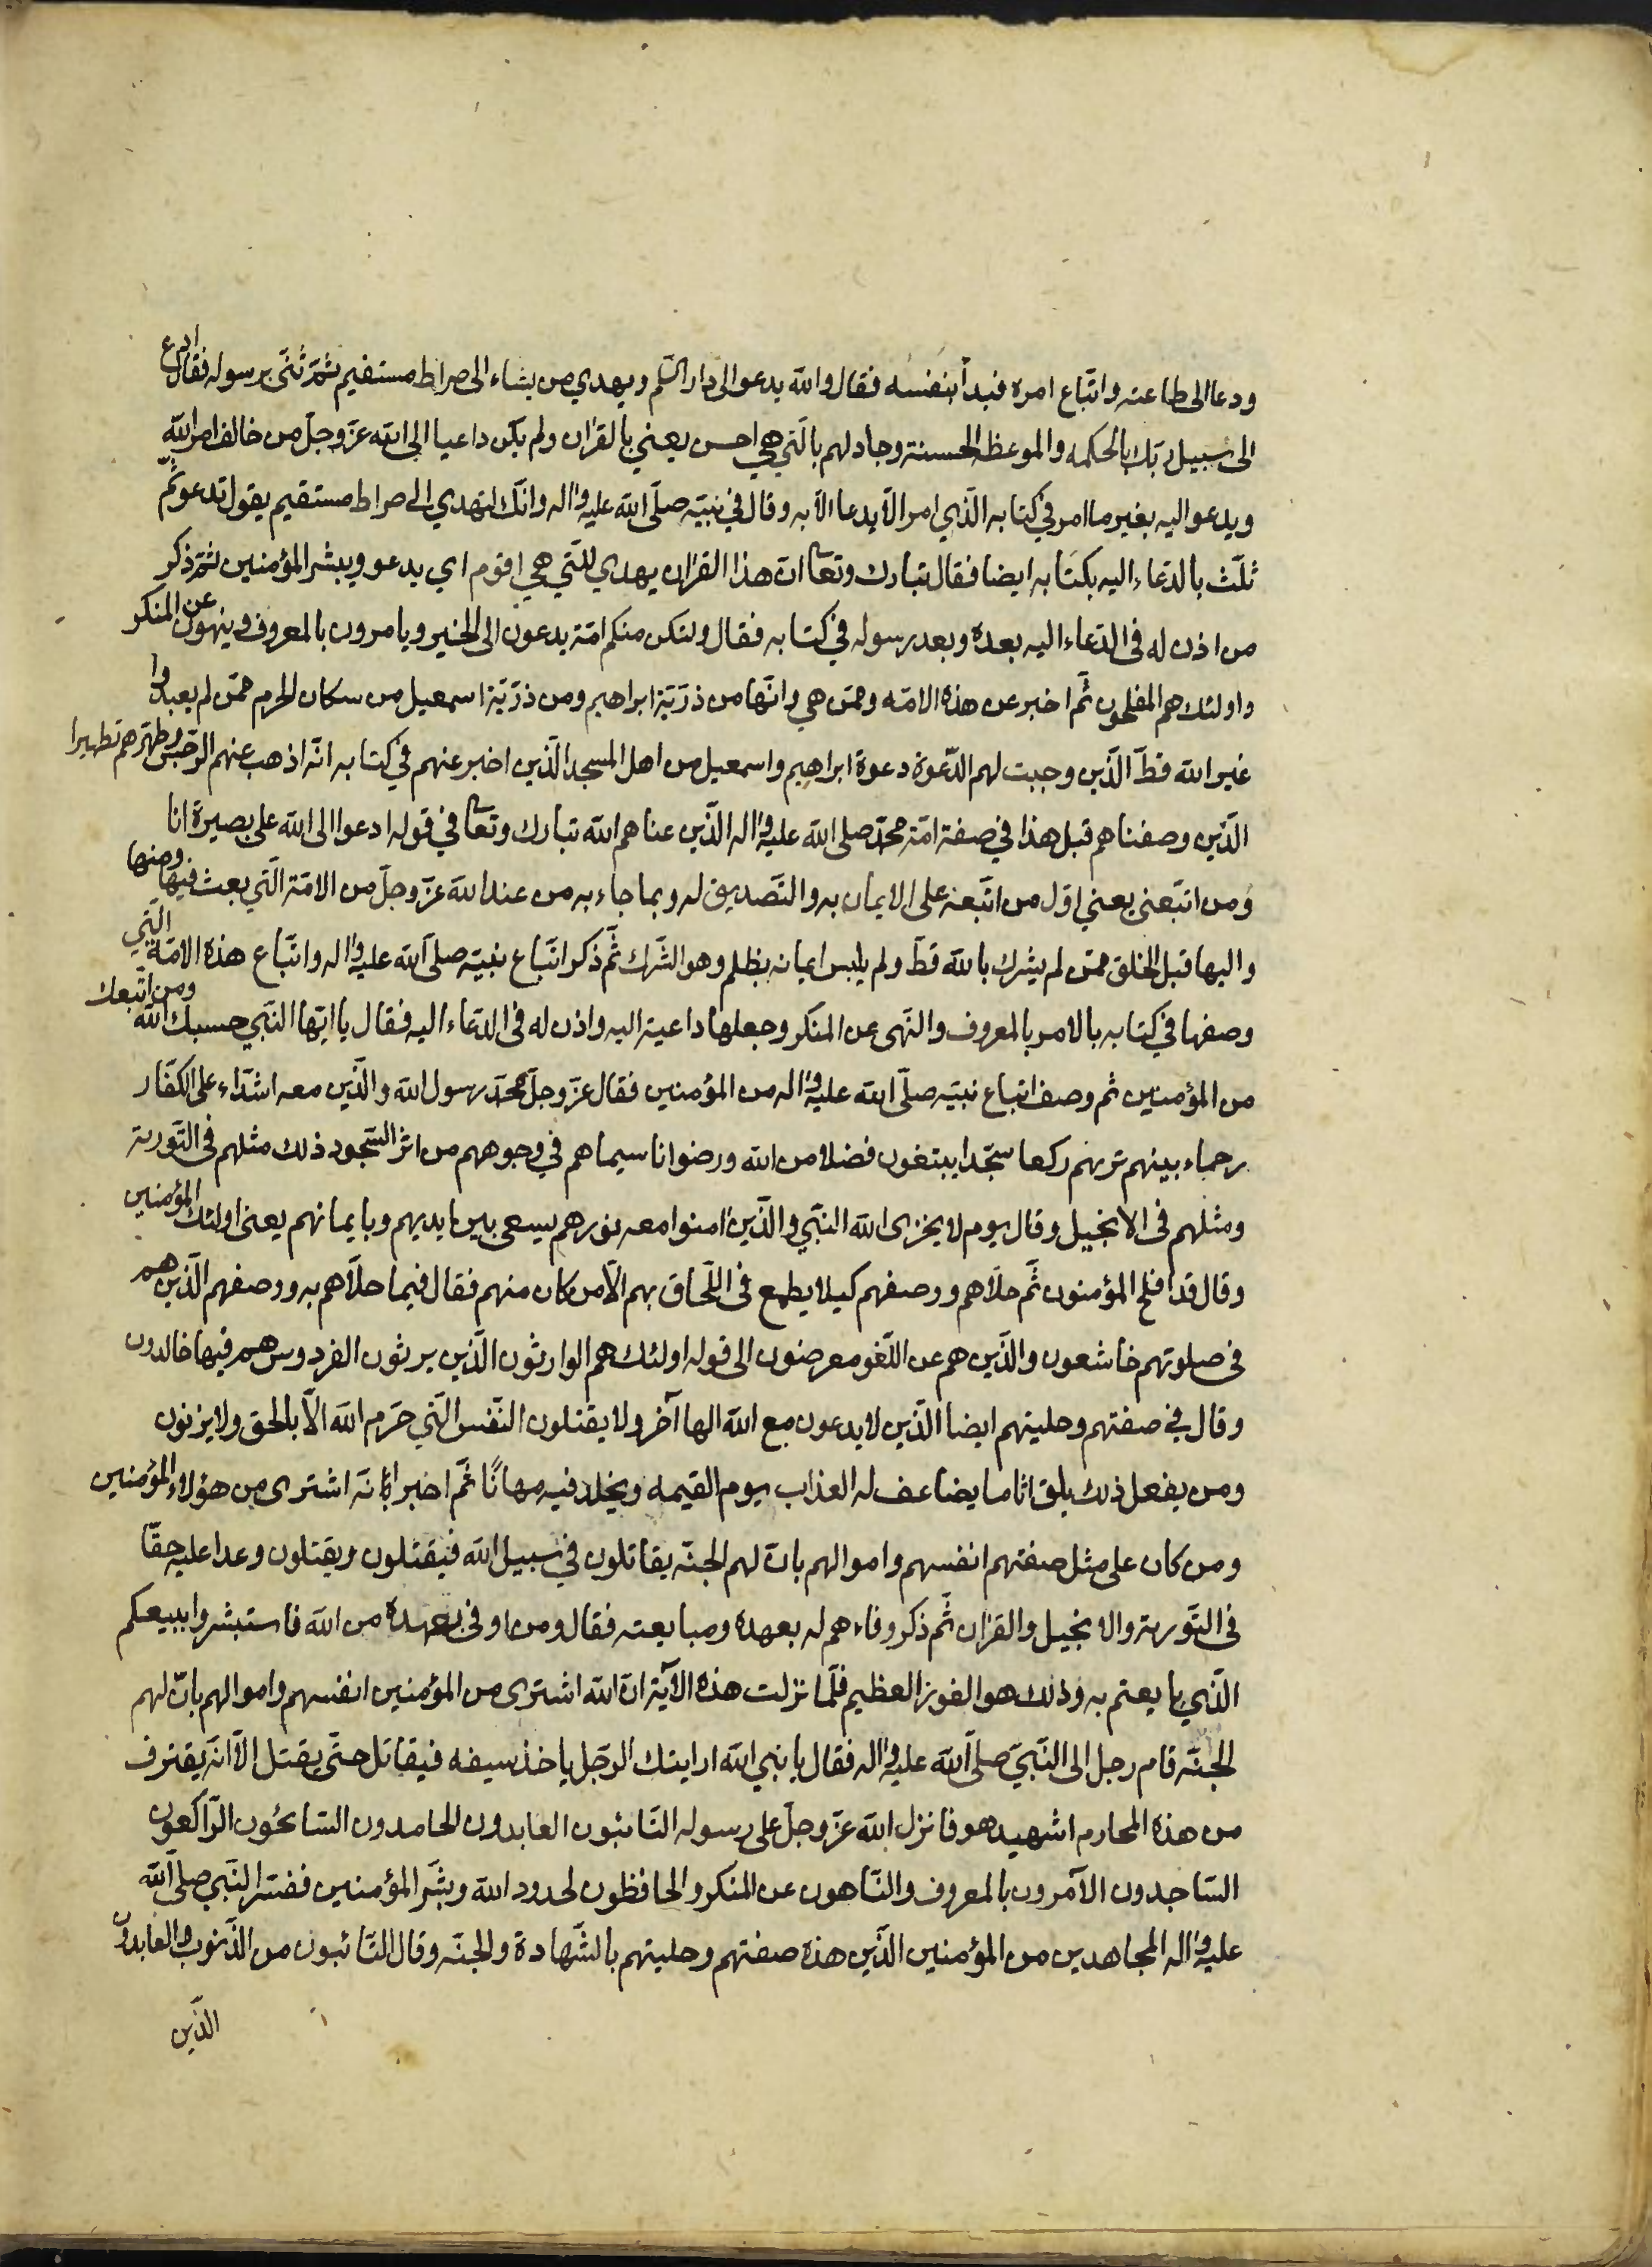 ودعا الى طاعته واتّباع امره فبدأ بنفسه فقال والله يدعو الى دار السّلم ويهدي من يشاء الى صراط مستقيم ثمّ ثنّى برسوله فقال ادع
الى سبيل ربّك بالحكمه والموعظه الحسنة وجادلهم بالّتي هي احسن يعني بالقران ولم يكن داعيا الى الله عزّ وجلّ من خالف امر الله
ويدعو اليه بغير ما امر في كتابه الّذي امر الّا يدعا الّا به وقال في نبيّه صلّى الله عليه واله وانّك لتهدي الى صراط مستقيم يقول تدعو ثمّ
ثلّث بالدّعاء اليه بكتابه ايضا فقال تبارك وتعالى انّ هذا القران يهدي للّتي هي اقوم اي يدعو ويبشر المؤمنين ثمّ ذكر
من اذن له في الدّعاء اليه بعده وبعد رسوله في كتابه فقال ولتكن منكم امّة يدعون الى الخير ويامرون بالمعروف وينهون عن المنكر
واولئك هم المفلحون ثّم اخبر عن هذه الامّه وممّن هي وانّها من ذرّيّة ابراهيم ومن ذرّيّة اسمعيل من سكان الحرم ممّن لم يعبدوا
غير الله قطّ الّذين وجبت لهم الدّعوة دعوة ابراهيم واسمعيل من اهل المسجد الّذين اخبر عنهم في كتابه انّه اذهب عنهم الرّجس وطهّرهم تطهيرا
الّذين وصفناهم قبل هذا في صفة امّة محمّد صلى الله عليه واله الّذين عناهم الله تبارك وتعالى في قوله ادعوا الى الله على بصيرة انا
ومن اتّبعنى يعني اوّل من اتّبعه على الايمان به والتّصديق له وبما جاء به من عند الله عزّ وجلّ من الامّة الّتي بعث فيها ومنها
واليها قبل الخلق ممّن لم يشرك بالله قطّ ولم يلبس ايمانه بظلم وهو الشّرك ثّم ذكر اتّباع نبيّه صلى الله عليه واله واتّباع هذه الامّة الّتي
وصفها في كتابه بالامر بالمعروف والنّهى عن المنكر وجعلها داعية اليه واذن له في الدّعاء اليه فقال يا ايّها النّبي حسبك الله ومن اتّبعك
من المؤمنين ثم وصف اتباع نبيّه صلّى الله عليه واله من المؤمنين فقال عزّ وجلّ محمّد رسول الله والّذين معه اشدّاء على الكفّار
رحماء بينهم تريهم ركعا سجّدا يبتغون فضلا من الله ورضوانا سيماهم في وجوههم من اثر السّجود ذلك مثلهم في التّورية
ومثلهم في الانجيل وقال يوم لا يخزى الله النبّي والّذين امنوا معه نورهم يسعى بين ايديهم وبايمانهم يعنى اولئك المؤمنين
وقال قد افلح المؤمنون ثّم حلّاهم ووصفهم كيلا يطمع في اللّحاق بهم الّا من كان منهم فقال فيما حلّاهم به ووصفهم الّذين هم
في صلوتهم خاشعون والّذين هم عن اللّغو معرضون الى قوله اولئك هم الوارثون الّذين يرثون الفردوس هم فيها خالدون
وقال في صفتهم وحليتهم ايضا الّذين لا يدعون مع الله الها آخر ولا يقتلون النّفس الّتي حرّم الله الّا بالحق ولا يزنون
ومن يفعل ذلك يلق اثاما يضاعف له العذاب يوم القيمه ويخلد فيه مهانًا ثّم اخبر انّه اشترى من هؤلاء المؤمنين
ومن كان على مثل صفتهم انفسهم واموالهم بانّ لهم الجنّه يقاتلون في سبيل الله فيقتلون ويقتلون وعدا عليه حقّا
في التّورية والانجيل والقران ثّم ذكر وفاءهم له بعهده ومبايعته فقال ومن اوفى بعهده من الله فاستبشروا ببيعكم
الّذي بايعتم به وذلك هو الفوز العظيم فلّما نزلت هذه الآية انّ الله اشترى من المؤمنين انفسهم واموالهم بانّ لهم
الجنّه قام رجل الى النّبيّ صلى الله عليه واله فقال يا نبي الله ارايتك الرّجل ياخذ سيفه فيقاتل حتّى يقتل الّا انّه يقترف
من هذه المحارم اشهيد هو فانزل الله عزّ وجلّ على رسوله التّائبون العابدون الحامدون السّائحون الرّاكعون
السّاجدون الآمرون بالمعروف والنّاهون عن المنكر والحافظون لحدود الله وبشّر المؤمنين ففسّر النّبي صلى الله
عليه واله المجاهدين من المؤمنين الّذين هذه صفتهم وحليتهم بالشّهادة والجنّه وقال التّائبون من الذّنوب والعابدون
الّذين